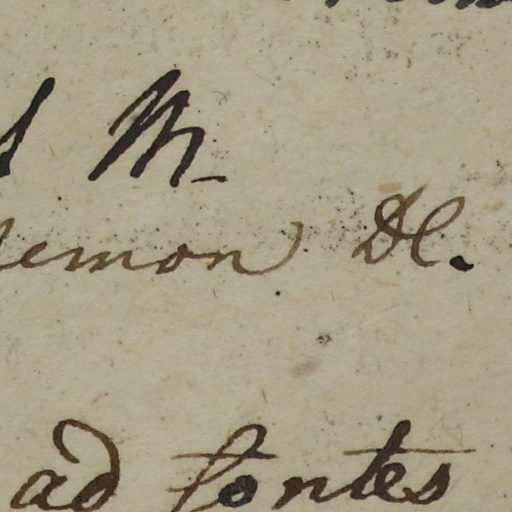 M.
emon Dl.
ad fontes